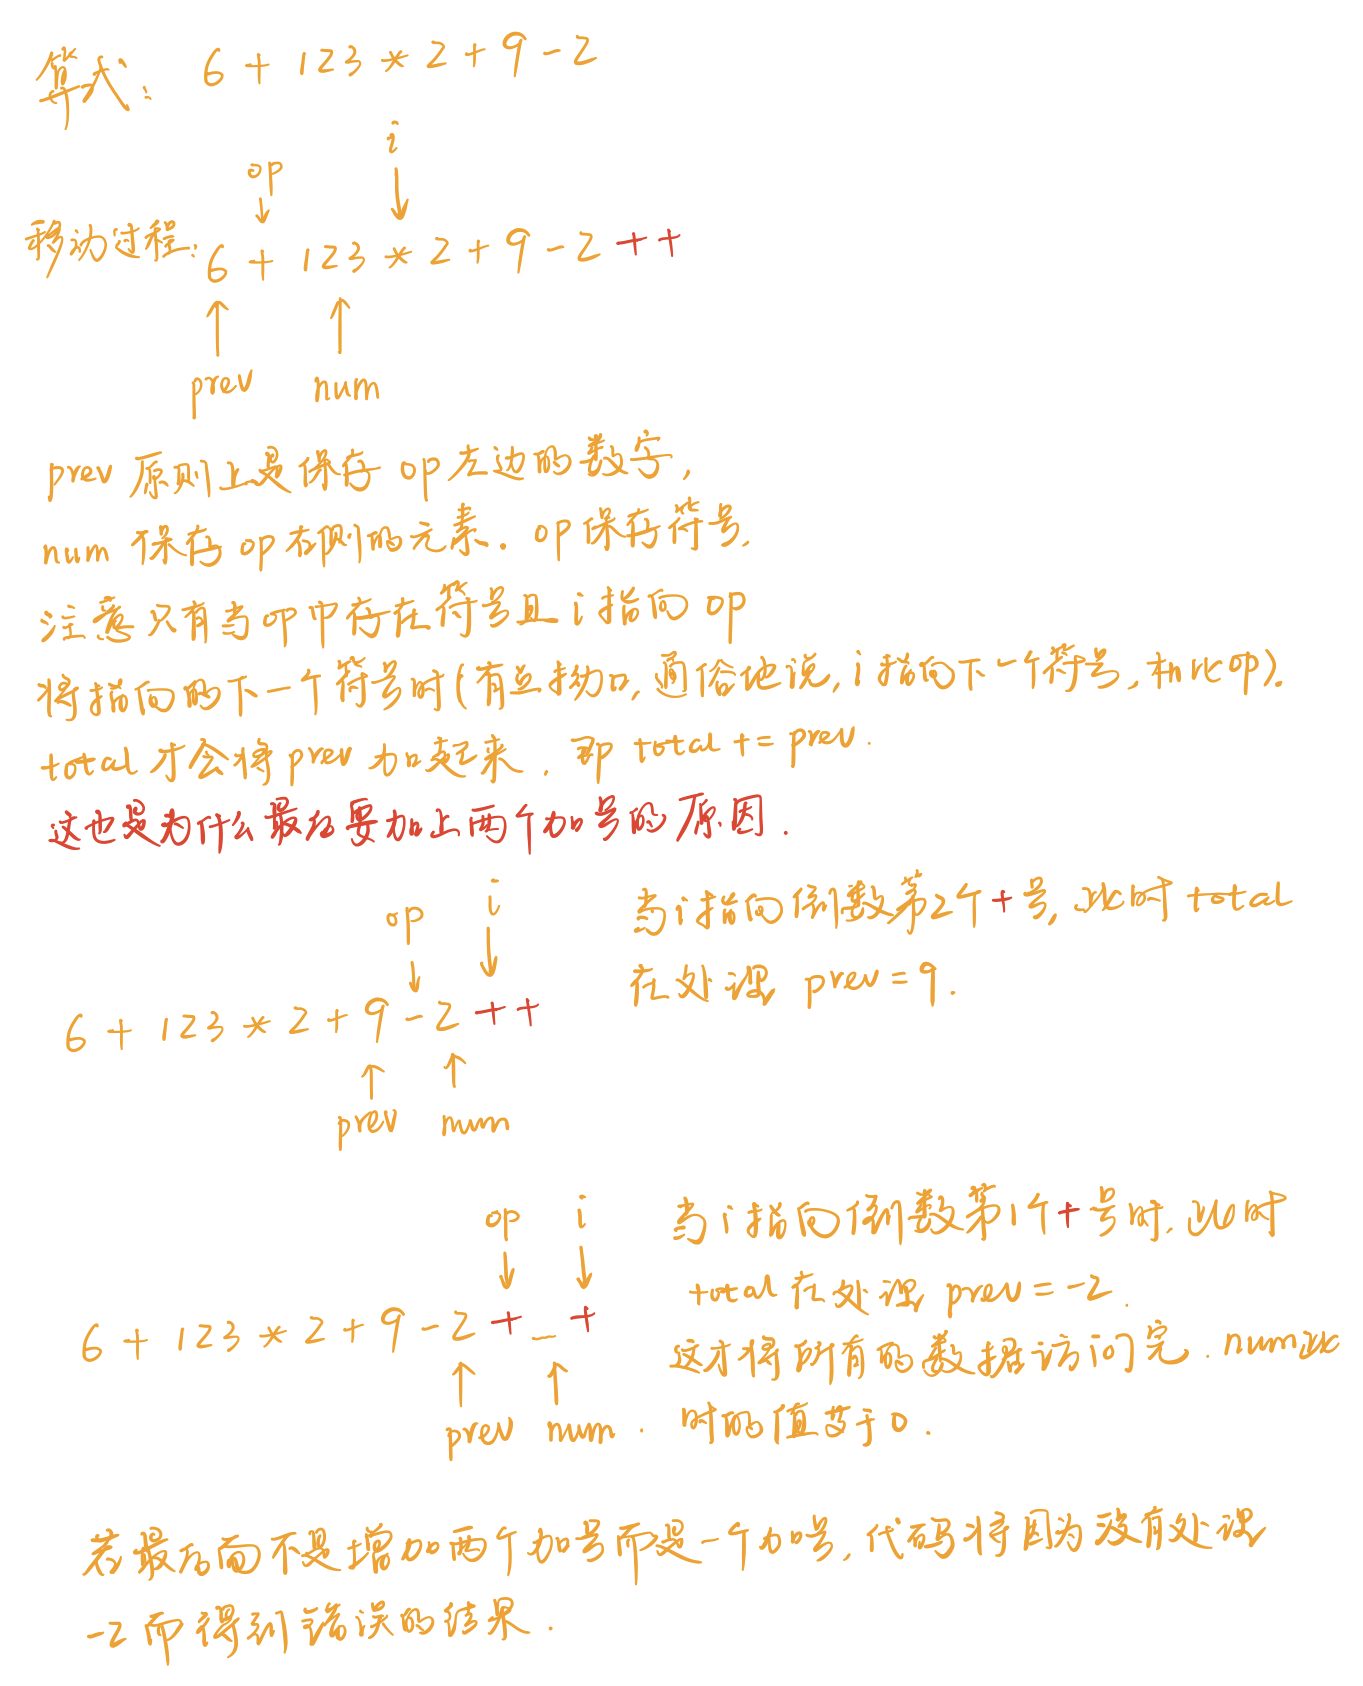 算式： 6 + 123 * 2 + 9 - 2
op i
移动过程： 6 + 123 * 2 + 9 - 2 + +
prev num
prev 原则上是保存 op 左边的数字，
num 保存 op 右侧的元素．op 保存符号．
注意只有当 op 中存在符号且 i 指向 op
将指向的下一个符号时（有点拗口，通俗地说，i 指向下一个符号，相比op）．
total 才会将 prev 加起来．即 total += prev．
这也是为什么最后要加上两个加号的原因．
op i
6 + 123 * 2 + 9 - 2 + +
prev num
当 i 指向倒数第2个 + 号，此时 total
在处理 prev = 9．
op i
6 + 123 * 2 + 9 - 2 + _ +
prev num．
当 i 指向倒数第1个 + 号时．此时
total 在处理 prev = -2．
这才将所有的数据访问完．num此
时的值等于 0．
若最后面不是增加两个加号而是一个加号，代码将因为没有处理
-2 而得到错误的结果．